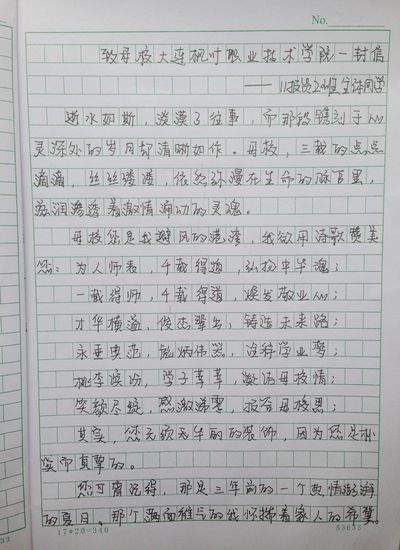 No.
致母校大连枫叶职业技术学院一封信
——11投资2班全体同学
逝水如斯，淡漠了往事，而那段镌刻于心
灵深处的岁月却清晰如昨。母校，三载的点点
滴滴，丝丝缕缕，依然弥漫在生命的脉冒里，
滋润渗透着激情涌动的灵魂。
母校您是我避风的港湾，我欲用诗歌赞美
您：为人师表，千载得道，弘扬中华魂；
一载得师，千载得道，焕发敬业心；
才华横溢，俊杰辈出，铸造未来路；
永垂典范，彪炳伟器，诠释学业梦；
桃李缤纷，学子莘莘，凝结母校情；
笑颜尽绽，感激涕零，报答母校恩；
其实，您无须无华丽的装饰，因为您是朴
实而真挚的。
您可曾记得，那是三年前的一个热情澎湃
的夏日，那个满面稚气的我怀揣着家人的希冀。
17*20=340
53633
33